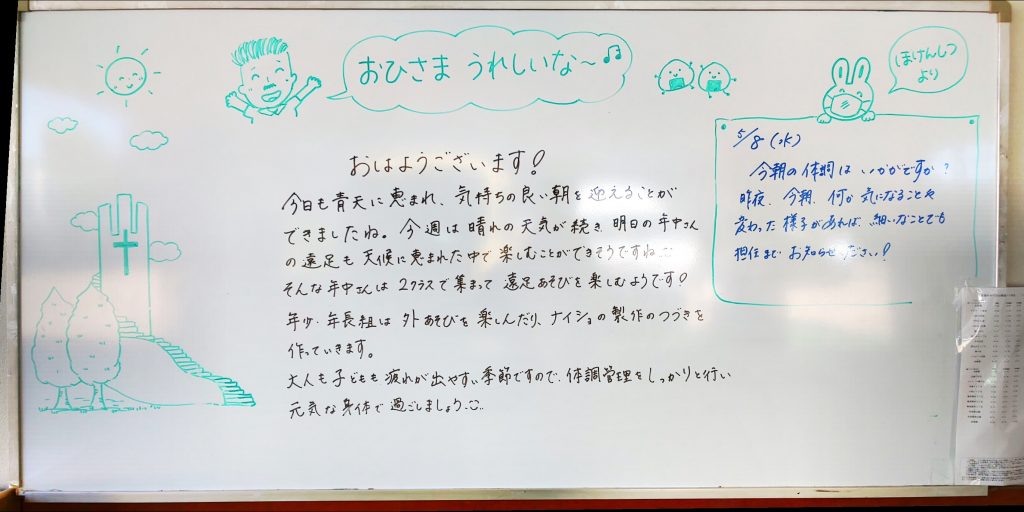 おひさま うれしいな～♫
ほけんしつ
より
おはようございます!
今日も青天に恵まれ、気持ちの良い朝を迎えることが
できましたね。今週は晴れの天気が続き、明日の年中さん
の遠足も天候に恵まれた中で楽しむことができそうですね
そんな年中さんは2クラスで集まって遠足あそびを楽しむようです!
年少・年長組は外あそびを楽しんだり、ナイショの製作のつづきを
作っていきます。
大人も子どもも疲れが出やすい季節ですので、体調管理をしっかりと行い
元気な身体で過ごしましょう
5/8(水)
今朝の体調はいかがですか?
昨夜、今朝、何か気になることや
変わった様子があれば、細いなことでも
担任まで お知らせください!